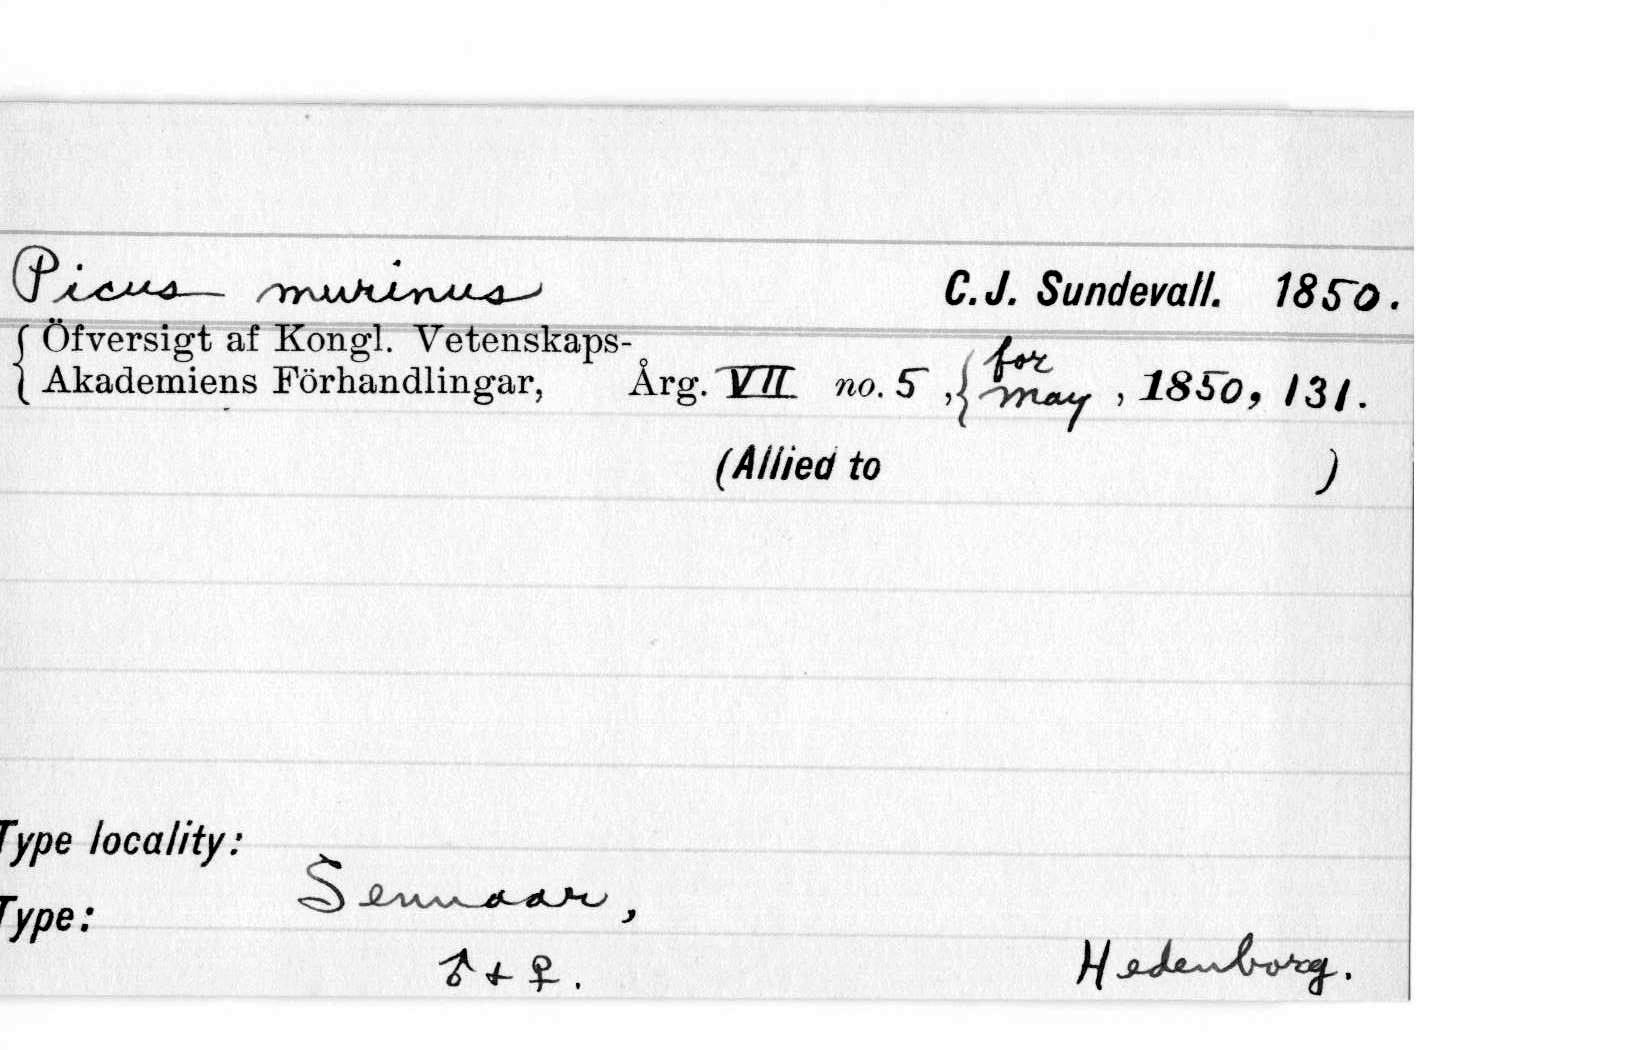 Picus murinus C. J. Sundevall. 1850.
{ Öfversigt af Kongl. Vetenskaps-
Akademiens Förhandlingar, Årg. VII no. 5, { for May, 1850, 131.
(Allied to )
Type locality:
Sennaar,
Type:
♂ + ♀. Hedenborg.